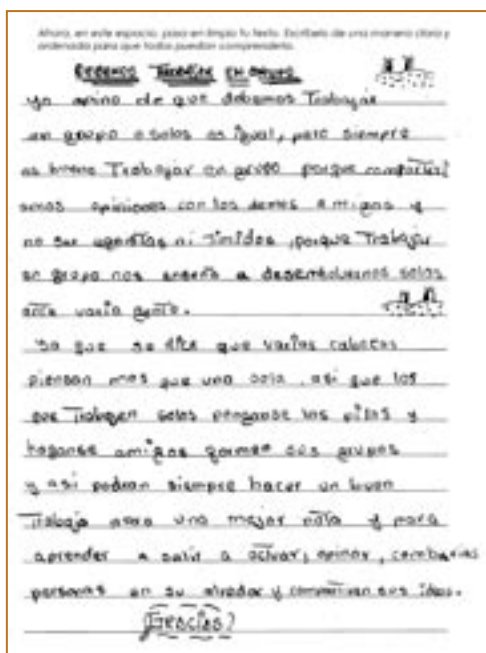 Ahora, en este espacio, pasa en limpio tu texto. Escríbelo de una manera clara y
ordenada para que todos puedan comprenderlo.
DEBEMOS TRABAJAR EN GRUPO
yo opino de que debemos Trabajar
en grupo o solos es igual, pero siempre
es bueno Trabajar en grupo porque
amos opiniones con los demás amigos y
no ser egoístas ni Timidos, porque Trabajar
en grupo nos enseña a desenvolvernos solos
ante varia gente.
Ya que se dice que varias cabezas
piensan mas que una sola, asi que los
que Trabajen solos pongance las pilas y
haganse amigos formen sus grupos
y asi podran siempre hacer un buen
Trabajo para una mejor nota y para
aprender a salir a actuar, opinar, con varias
personas en su alredor y compartiran sus ideas.
¡Gracias!